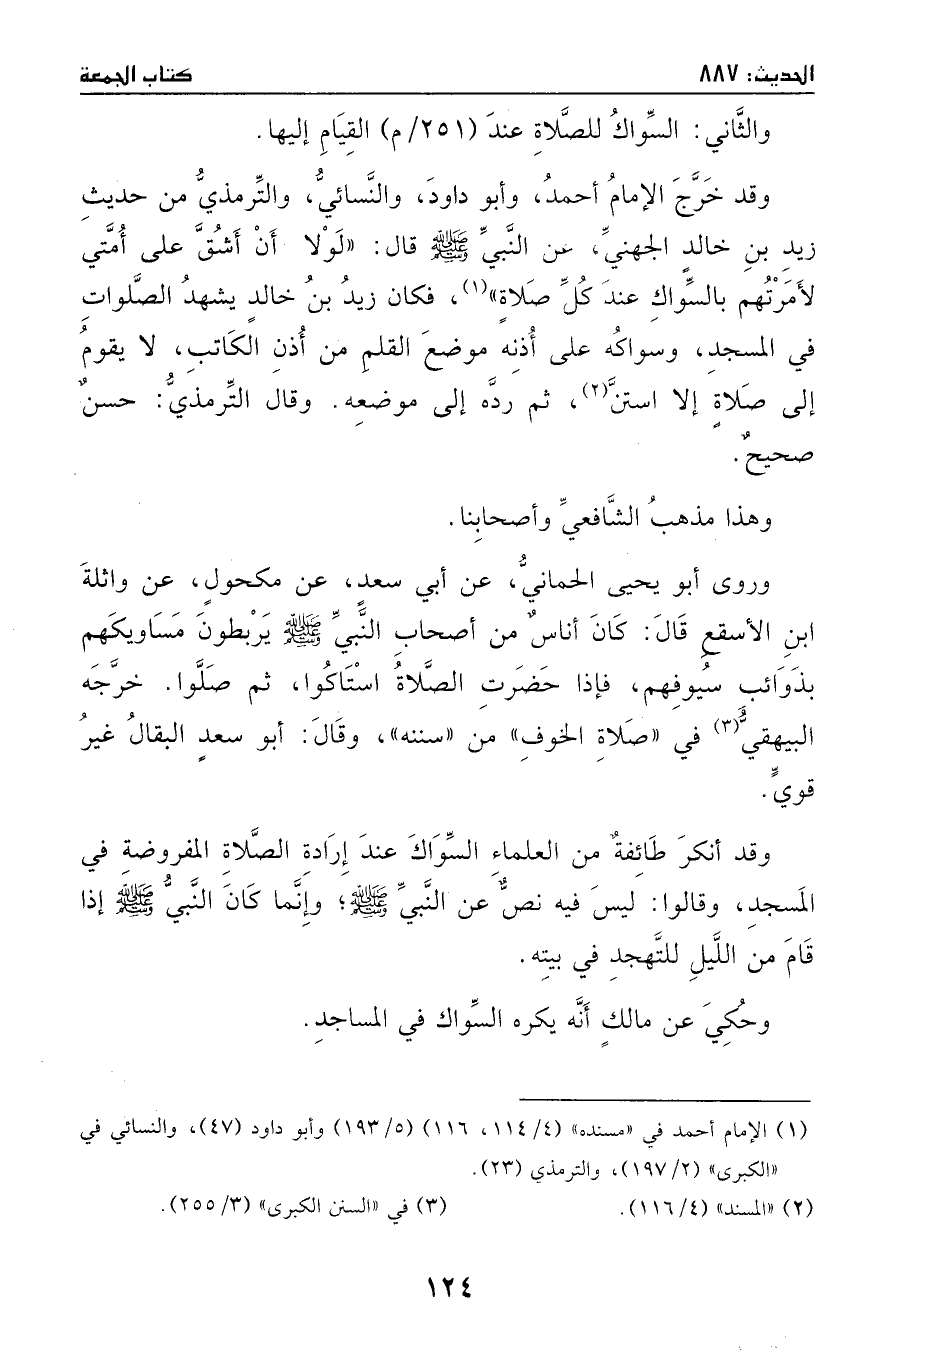 الحديث: ٨٨٧ كتاب الجمعة
والثَّاني: السِّواكُ للصَّلاةِ عندَ (٢٥١/م) القِيَامِ إليها.
وقد خَرَّجَ الإمامُ أحمدُ، وأبو داودَ، والنَّسائيُّ، والتِّرمذيُّ من حديثِ
زيد بنِ خالدٍ الجهنيِّ، عن النَّبيِّ ﷺ قال: «لَوْلا أَنْ أَشُقَّ على أُمَّتي
لأَمَرْتُهم بالسِّواكِ عندَ كُلِّ صَلاةٍ»(١)، فكان زيدُ بنُ خالدٍ يشهدُ الصَّلواتِ
في المسجدِ، وسواكُه على أذنِه موضعَ القلمِ من أُذنِ الكَاتبِ، لا يقومُ
إلى صَلاةٍ إلا استنَّ(٢)، ثم ردَّه إلى موضعِه. وقال التِّرمذيُّ: حسنٌ
صحيحٌ.
وهذا مذهبُ الشَّافعيِّ وأصحابِنا.
وروى أبو يحيى الحمانيُّ، عن أبي سعدٍ، عن مكحولٍ، عن واثلةَ
ابنِ الأسقعِ قَالَ: كَانَ أناسٌ من أصحابِ النَّبيِّ ﷺ يَرْبطونَ مَسَاويكَهم
بذَوَائبِ سيُوفِهم، فإذا حضَرَت الصَّلاةُ استَاكُوا، ثم صَلَّوا. خرَّجَه
البيهقيُّ(٣) في «صَلاةِ الخوفِ» من «سننه»، وقَالَ: أبو سعدٍ البقالُ غيرُ
قويٍّ.
وقد أنكرَ طَائِفةٌ من العلماءِ السِّوَاكَ عندَ إرَادةِ الصَّلاةِ المفروضةِ في
المَسجدِ، وقالوا: ليسَ فيه نصٌّ عن النَّبيِّ ﷺ؛ وإنَّما كَانَ النَّبيُّ ﷺ إذا
قَامَ من اللَّيلِ للتَّهجدِ في بيتِه.
وحُكِيَ عن مالكٍ أنَّه يكره السِّواك في المساجدِ.
(١) الإمام أحمد في «مسنده» (٤/ ١١٤، ١١٦) (٥/ ١٩٣) وأبو داود (٤٧)، والنسائي في
«الكبرى» (٢/ ١٩٧)، والترمذي (٢٣).
(٢) «المسند» (٤/ ١١٦). (٣) في «السنن الكبرى» (٣/ ٢٥٥).
١٢٤